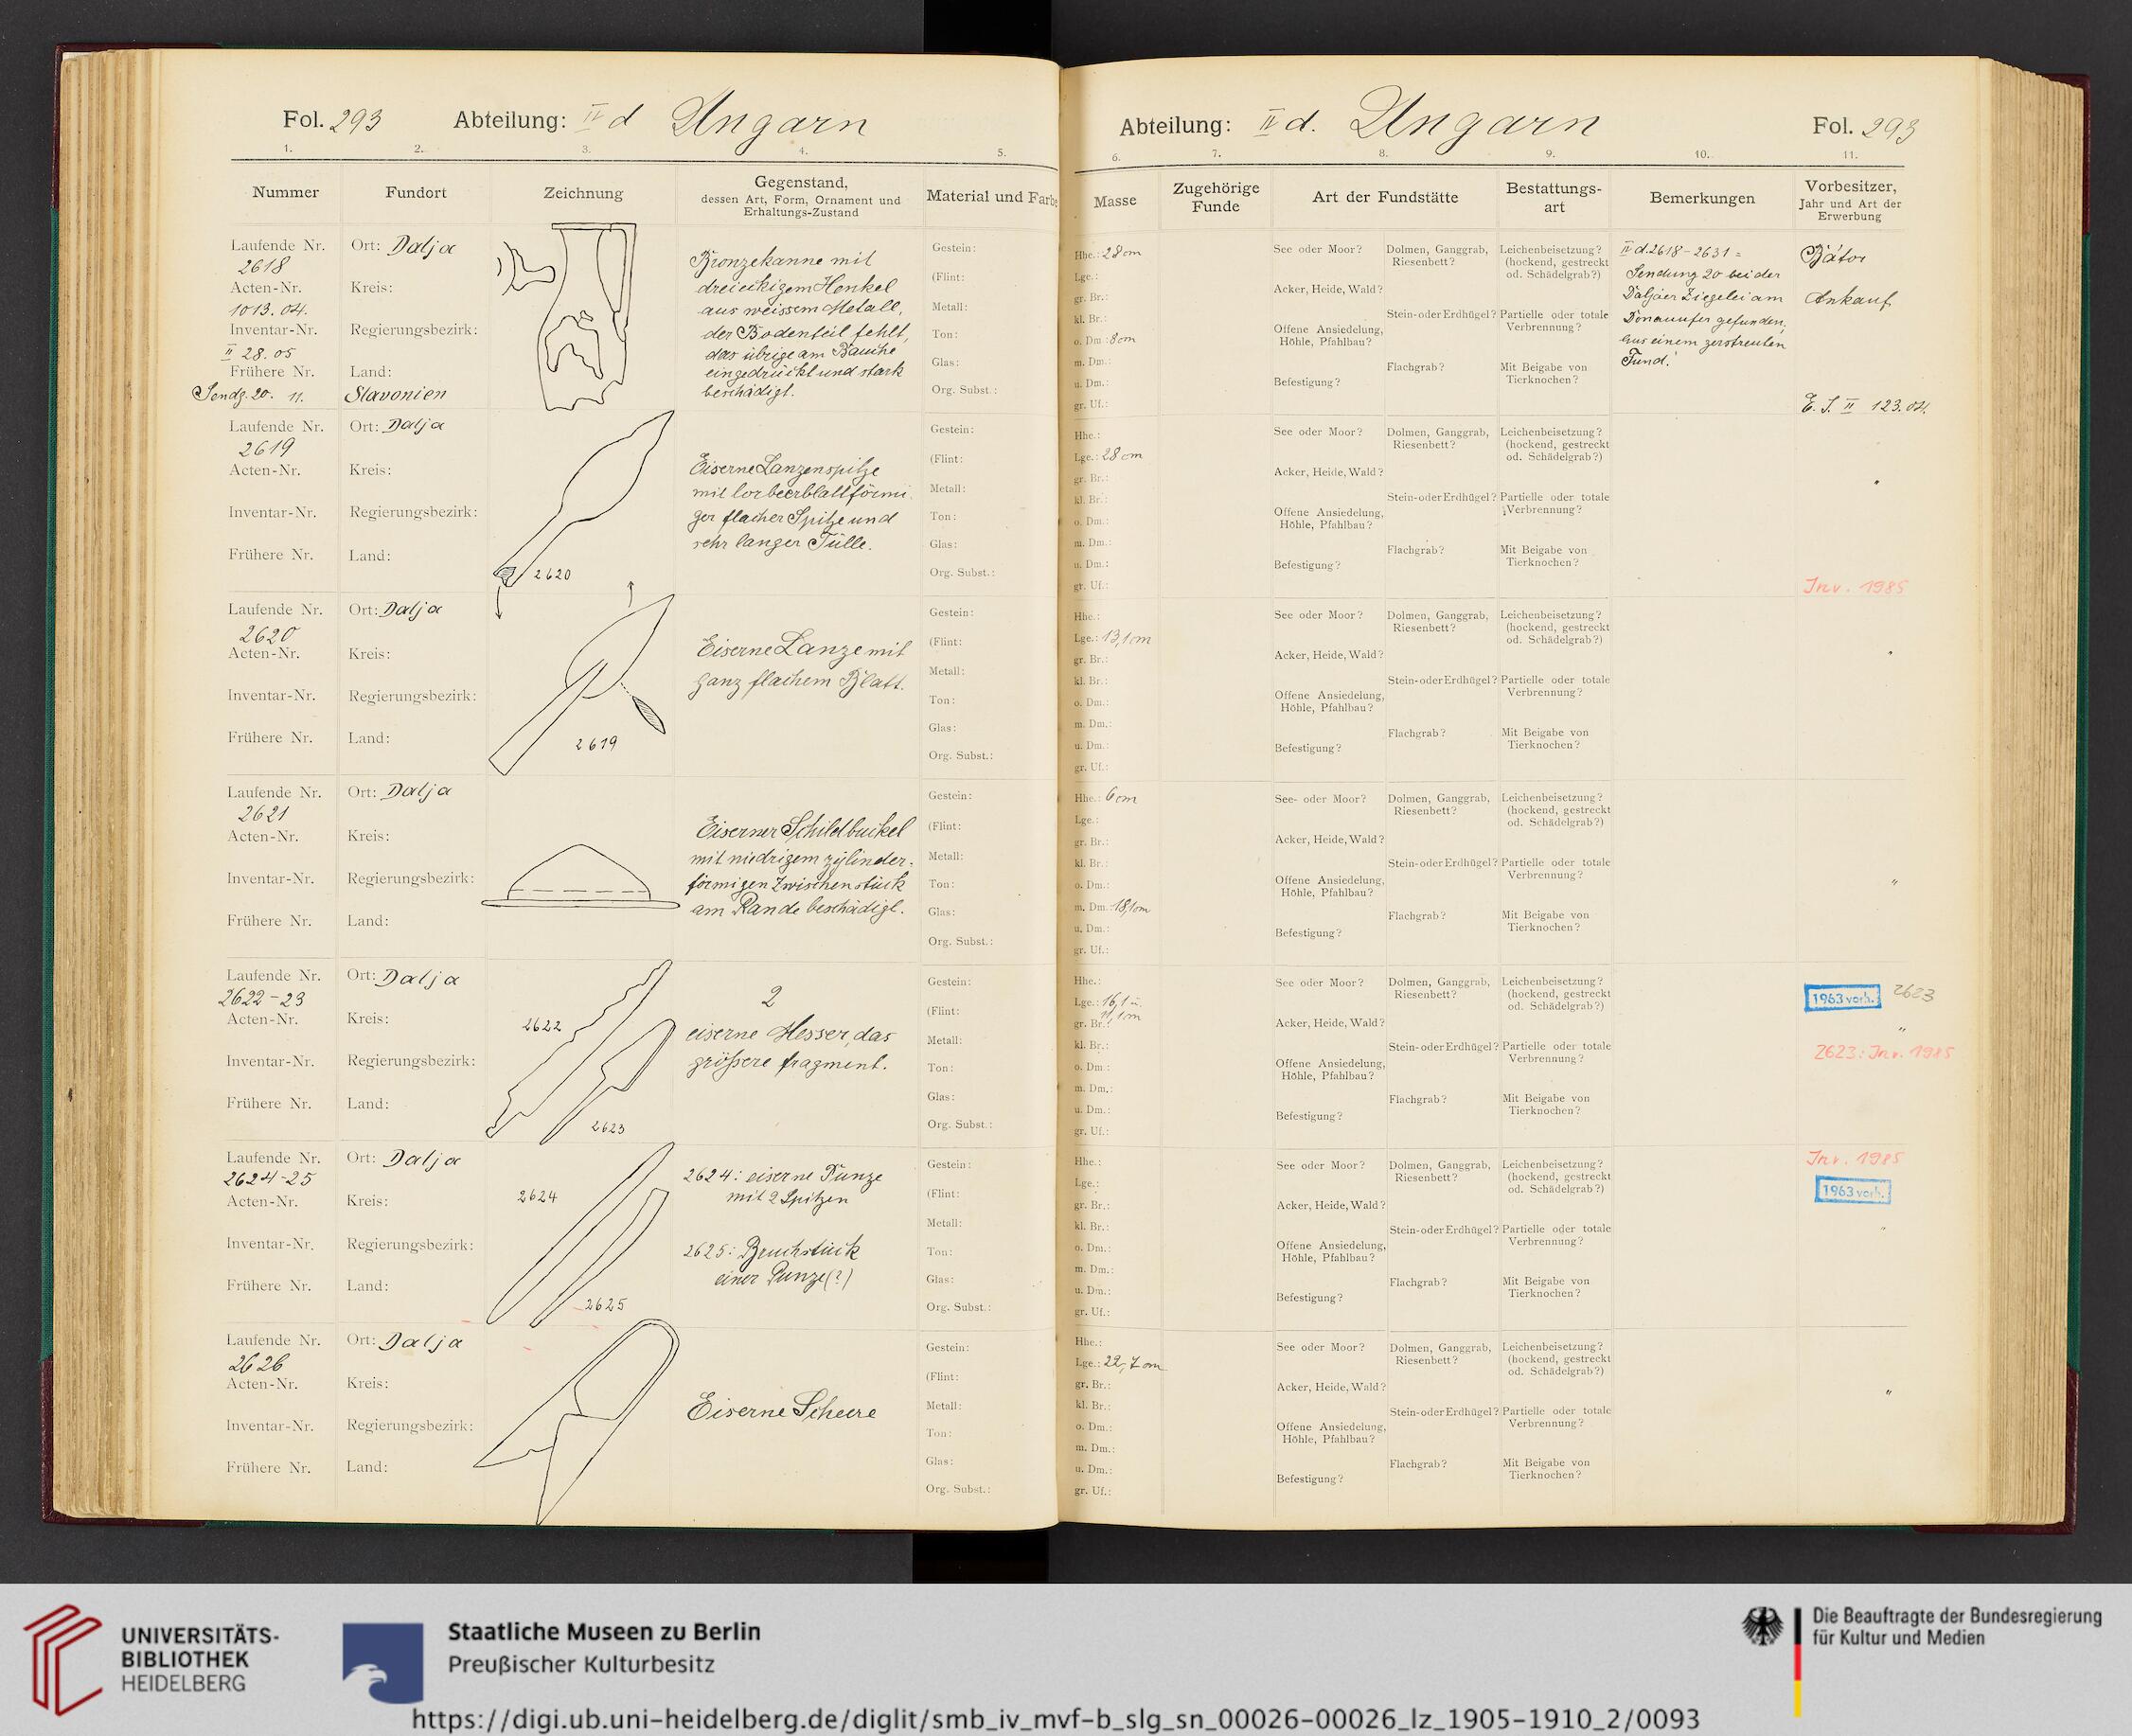 Fol. 293 Abteilung: IV d Ungarn
1. 2. 3. 4. 5.
Nummer Fundort Zeichnung Gegenstand, dessen Art, Form, Ornament und Erhaltungs-Zustand Material und Farbe
Laufende Nr. 2618
Acten-Nr. 1013.04.
Inventar-Nr. II 28.05
Frühere Nr. Sendg. 20. 11.
Ort: Dalja
Kreis:
Regierungsbezirk:
Land: Slavonien
Bronzekanne mit
dreieckigem Henkel
aus weissem Metall,
der Bodenteil fehlt,
das übrige am Bauche
eingedrückt und stark
beschädigt.
Gestein:
(Flint:
Metall:
Ton:
Glas:
Org. Subst.:
Laufende Nr. 2619
Acten-Nr.
Inventar-Nr.
Frühere Nr.
Ort: Dalja
Kreis:
Regierungsbezirk:
Land:
2620
Eiserne Lanzenspitze
mit lorbeerblattförmi
ger flacher Spitze und
sehr langer Tülle.
Gestein:
(Flint:
Metall:
Ton:
Glas:
Org. Subst.:
Laufende Nr. 2620
Acten-Nr.
Inventar-Nr.
Frühere Nr.
Ort: Dalja
Kreis:
Regierungsbezirk:
Land:
2619
Eiserne Lanze mit
ganz flachem Blatt.
Gestein:
(Flint:
Metall:
Ton:
Glas:
Org. Subst.:
Laufende Nr. 2621
Acten-Nr.
Inventar-Nr.
Frühere Nr.
Ort: Dalja
Kreis:
Regierungsbezirk:
Land:
Eiserner Schildbuckel
mit niedrigem zylinder-
förmigen Zwischenstück
am Rande beschädigt.
Gestein:
(Flint:
Metall:
Ton:
Glas:
Org. Subst.:
Laufende Nr. 2622-23
Acten-Nr.
Inventar-Nr.
Frühere Nr.
Ort: Dalja
Kreis:
Regierungsbezirk:
Land:
2622
2623
2
eiserne Messer, das
grössere fragment.
Gestein:
(Flint:
Metall:
Ton:
Glas:
Org. Subst.:
Laufende Nr. 2624-25
Acten-Nr.
Inventar-Nr.
Frühere Nr.
Ort: Dalja
Kreis:
Regierungsbezirk:
Land:
2624
2625
2624: eiserne Punze
mit 2 Spitzen
2625: Bruchstück
einer Punze(?)
Gestein:
(Flint:
Metall:
Ton:
Glas:
Org. Subst.:
Laufende Nr. 2626
Acten-Nr.
Inventar-Nr.
Frühere Nr.
Ort: Dalja
Kreis:
Regierungsbezirk:
Land:
Eiserne Scheere
Gestein:
(Flint:
Metall:
Ton:
Glas:
Org. Subst.:
Abteilung: IV d. Ungarn Fol. 293
6. 7. 8. 9. 10. 11.
Masse Zugehörige Funde Art der Fundstätte Bestattungs-art Bemerkungen Vorbesitzer, Jahr und Art der Erwerbung
Hhe.: 28 cm
Lge.:
gr. Br.:
kl. Br.:
o. Dm.: 8 cm
m. Dm.:
u. Dm.:
gr. Uf.:
See oder Moor?
Acker, Heide, Wald?
Offene Ansiedelung,
Höhle, Pfahlbau?
Befestigung?
Dolmen, Ganggrab,
Riesenbett?
Stein- oder Erdhügel?
Flachgrab?
Leichenbeisetzung?
(hockend, gestreckt
od. Schädelgrab?)
Partielle oder totale
Verbrennung?
Mit Beigabe von
Tierknochen?
IV d. 2618-2631 =
Sendung 20 bei der
Daljáer Ziegelei am
Donauufer gefunden,
aus einem zerstreuten
Fund.
Bátor
Ankauf
E. J. II 123.04.
Hhe.:
Lge.: 28 cm
gr. Br.:
kl. Br.:
o. Dm.:
m. Dm.:
u. Dm.:
gr. Uf.:
See oder Moor?
Acker, Heide, Wald?
Offene Ansiedelung,
Höhle, Pfahlbau?
Befestigung?
Dolmen, Ganggrab,
Riesenbett?
Stein- oder Erdhügel?
Flachgrab?
Leichenbeisetzung?
(hockend, gestreckt
od. Schädelgrab?)
Partielle oder totale
Verbrennung?
Mit Beigabe von
Tierknochen?
"
Inv. 1985
Hhe.:
Lge.: 13,1 cm
gr. Br.:
kl. Br.:
o. Dm.:
m. Dm.:
u. Dm.:
gr. Uf.:
See oder Moor?
Acker, Heide, Wald?
Offene Ansiedelung,
Höhle, Pfahlbau?
Befestigung?
Dolmen, Ganggrab,
Riesenbett?
Stein- oder Erdhügel?
Flachgrab?
Leichenbeisetzung?
(hockend, gestreckt
od. Schädelgrab?)
Partielle oder totale
Verbrennung?
Mit Beigabe von
Tierknochen?
"
Hhe.: 6 cm
Lge.:
gr. Br.:
kl. Br.:
o. Dm.:
m. Dm.: 18,1 cm
u. Dm.:
gr. Uf.:
See- oder Moor?
Acker, Heide, Wald?
Offene Ansiedelung,
Höhle, Pfahlbau?
Befestigung?
Dolmen, Ganggrab,
Riesenbett?
Stein- oder Erdhügel?
Flachgrab?
Leichenbeisetzung?
(hockend, gestreckt
od. Schädelgrab?)
Partielle oder totale
Verbrennung?
Mit Beigabe von
Tierknochen?
"
Hhe.:
Lge.: 16,1 u.
11,1 cm
gr. Br.:
kl. Br.:
o. Dm.:
m. Dm.:
u. Dm.:
gr. Uf.:
See oder Moor?
Acker, Heide, Wald?
Offene Ansiedelung,
Höhle, Pfahlbau?
Befestigung?
Dolmen, Ganggrab,
Riesenbett?
Stein- oder Erdhügel?
Flachgrab?
Leichenbeisetzung?
(hockend, gestreckt
od. Schädelgrab?)
Partielle oder totale
Verbrennung?
Mit Beigabe von
Tierknochen?
1963 vorh. 2623
"
2623: Inv. 1985
Hhe.:
Lge.:
gr. Br.:
kl. Br.:
o. Dm.:
m. Dm.:
u. Dm.:
gr. Uf.:
See oder Moor?
Acker, Heide, Wald?
Offene Ansiedelung,
Höhle, Pfahlbau?
Befestigung?
Dolmen, Ganggrab,
Riesenbett?
Stein- oder Erdhügel?
Flachgrab?
Leichenbeisetzung?
(hockend, gestreckt
od. Schädelgrab?)
Partielle oder totale
Verbrennung?
Mit Beigabe von
Tierknochen?
Inv. 1985
1963 vorh.
"
Hhe.:
Lge.: 22,7 cm
gr. Br.:
kl. Br.:
o. Dm.:
m. Dm.:
u. Dm.:
gr. Uf.:
See oder Moor?
Acker, Heide, Wald?
Offene Ansiedelung,
Höhle, Pfahlbau?
Befestigung?
Dolmen, Ganggrab,
Riesenbett?
Stein- oder Erdhügel?
Flachgrab?
Leichenbeisetzung?
(hockend, gestreckt
od. Schädelgrab?)
Partielle oder totale
Verbrennung?
Mit Beigabe von
Tierknochen?
"
UNIVERSITÄTS-
BIBLIOTHEK
HEIDELBERG
Staatliche Museen zu Berlin
Preußischer Kulturbesitz
Die Beauftragte der Bundesregierung
für Kultur und Medien
https://digi.ub.uni-heidelberg.de/diglit/smb_iv_mvf-b_slg_sn_00026-00026_lz_1905-1910_2/0093